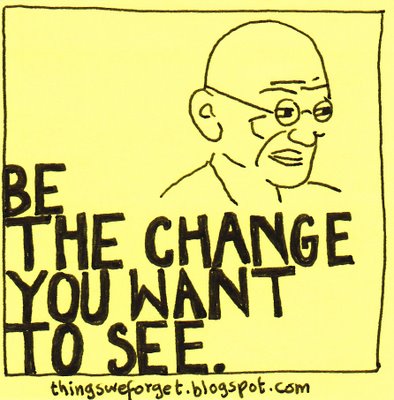 BE
THE CHANGE
YOU WANT
TO SEE.
thingsweforget.blogspot.com